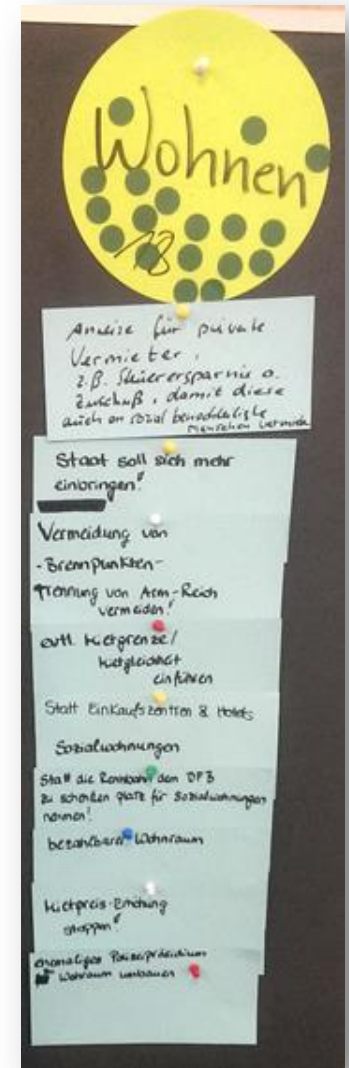 Wohnen
18
Anreize für private
Vermieter,
z.B. Steuerersparnis o.
Zuschuß, damit diese
auch an sozial benachteiligte
Menschen vermieten
Staat soll sich mehr
einbringen!
Vermeidung von
-Brennpunkten-
Trennung von Arm-Reich
vermeiden!
evtl. Mietgrenze/
Mietgleichheit
einführen
Statt Einkaufszentren & Hotels
Sozialwohnungen
Statt die Rennbahn dem DFB
zu schenken Platz für Sozialwohnungen
nehmen!
bezahlbarer Wohnraum
Mietpreis-Erhöhung
stoppen!
ehemaliges Polizeipräsidium
Wohnraum umbauen